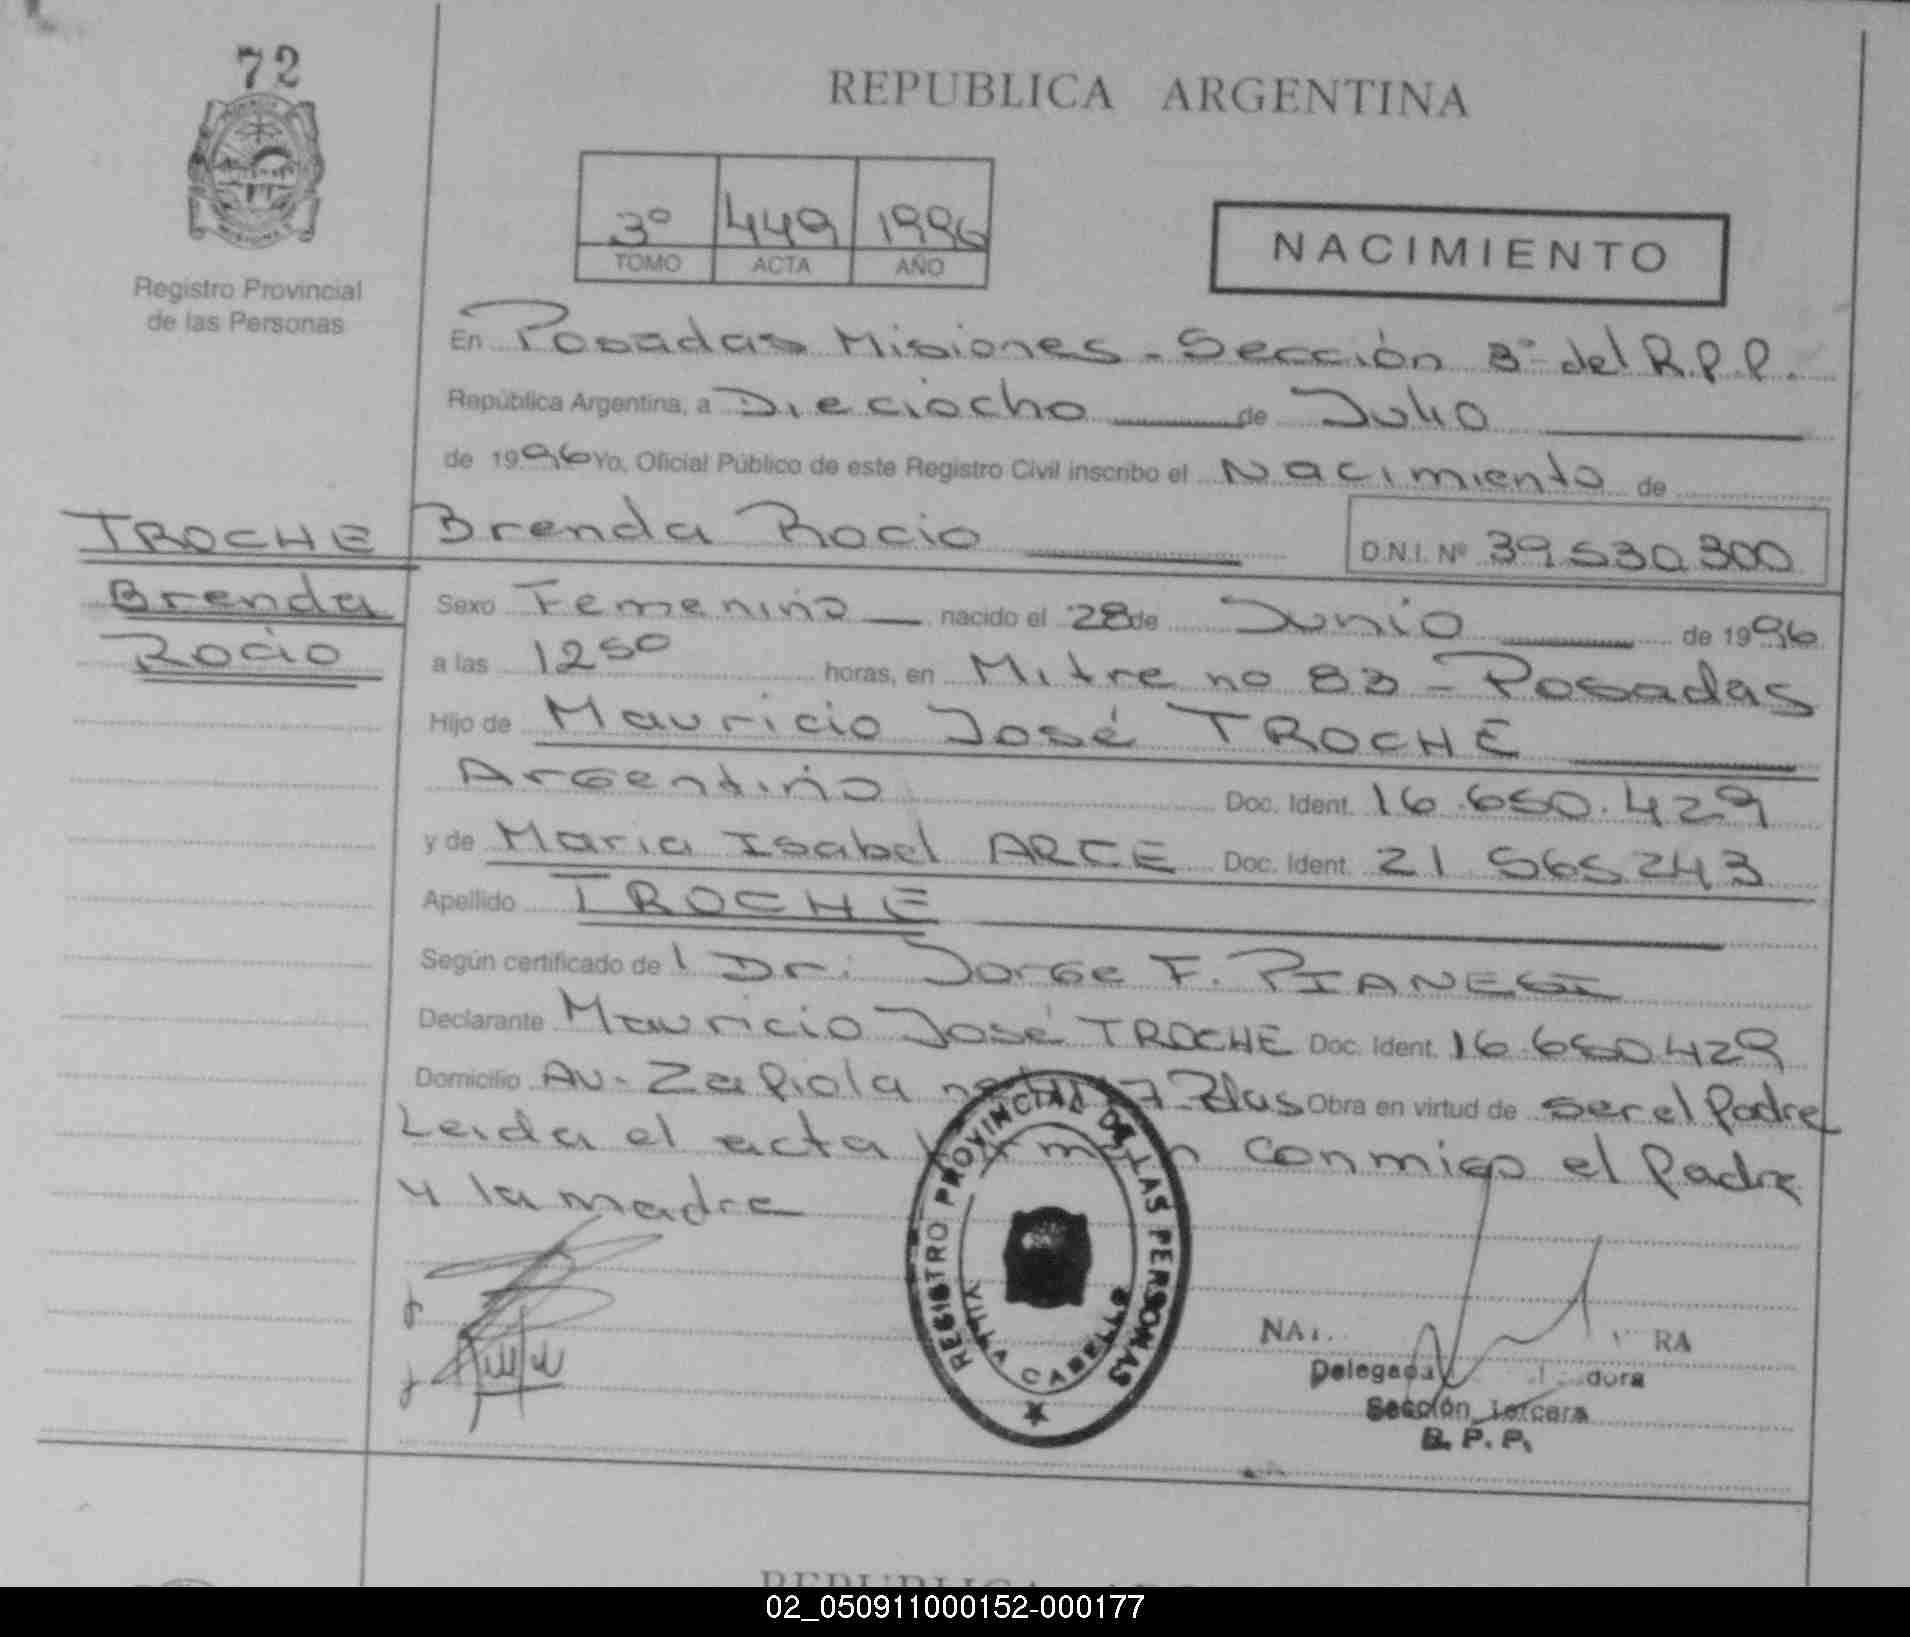 72
REPUBLICA ARGENTINA
3º 449 1996
TOMO ACTA AÑO
NACIMIENTO
Registro Provincial
de las Personas
En Posadas Misiones - Sección 3º del R.P.P.
República Argentina, a Dieciocho de Julio
de 1996 Yo, Oficial Público de este Registro Civil inscribo el Nacimiento de
TROCHE Brenda Rocio D.N.I. Nº 39.530.300
Brenda
Rocio
Sexo Femenino nacido el 28 de Junio de 1996
a las 12 50 horas, en Mitre no 83 - Posadas
Hijo de Mauricio José TROCHE
Argentino Doc. Ident. 16.650.429
y de Maria Isabel ARCE Doc. Ident. 21 565243
Apellido TROCHE
Según certificado de l Dr. Jorge F.
Declarante Mauricio José TROCHE Doc. Ident. 16.650.429
Domicilio Av- Zapiola Pdas Obra en virtud de ser el Padre
Leida el acta conmigo el Padre
y la madre
REGISTRO PROVINCIAL DE LAS PERSONAS
VILLA CABELLO
RA
Sección Tercera
R. P. P.
REPUBLICA
02_050911000152-000177